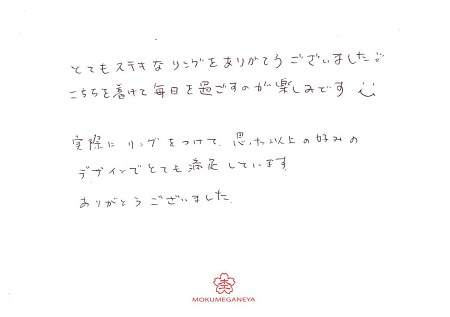 とてもステキなリングをありがとうございました
こちらを着けて毎日を過ごすのが楽しみです
実際にリングをつけて、思った以上の好みの
デザインでとても満足しています
ありがとうございました.
杢
MOKUMEGANEYA